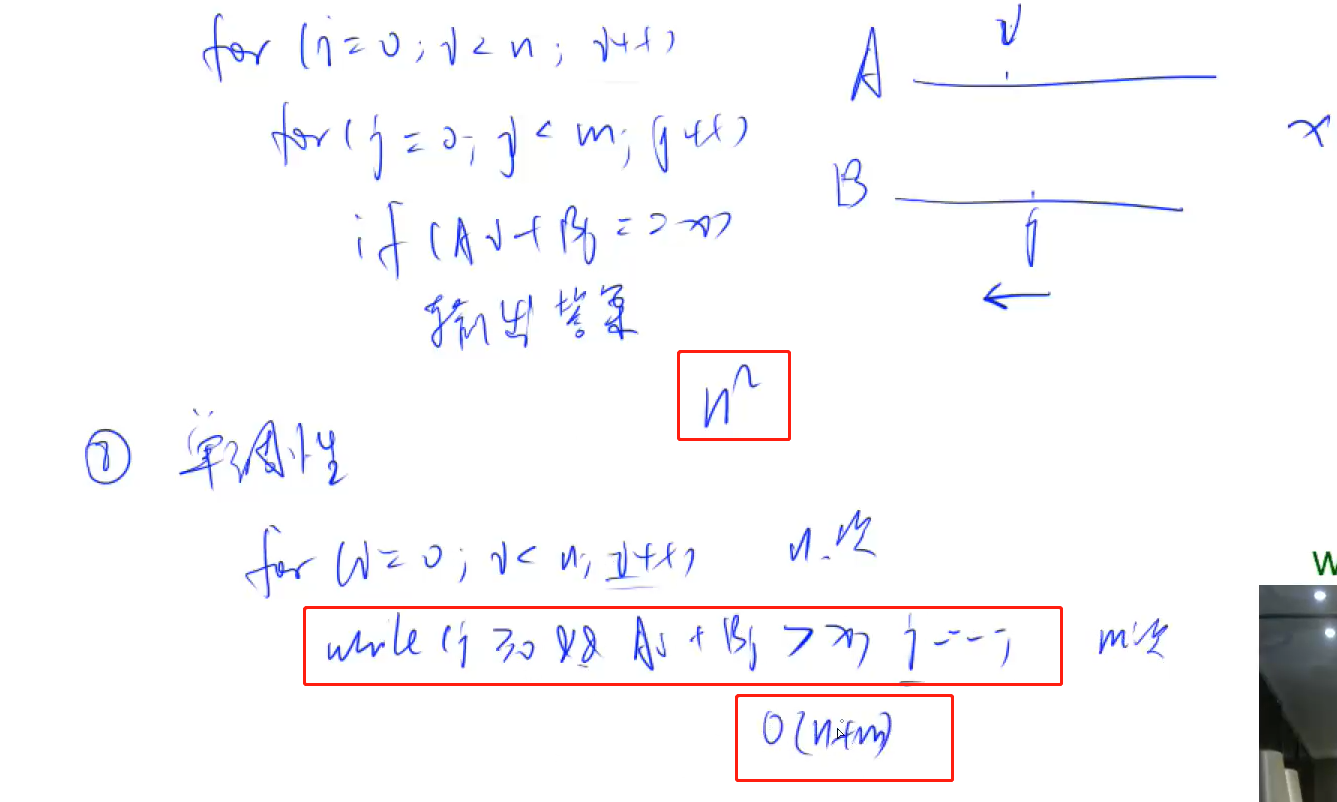 for (i=0; i<n; i++)
for (j=0; j<m; j++)
if (Ai+Bj==x)
输出答案
A
i
B
j
x
n²
② 单调性
for (i=0; i<n; i++) n次
while (j≥0 && Ai+Bj>x) j--; m次
O(n+m)
W